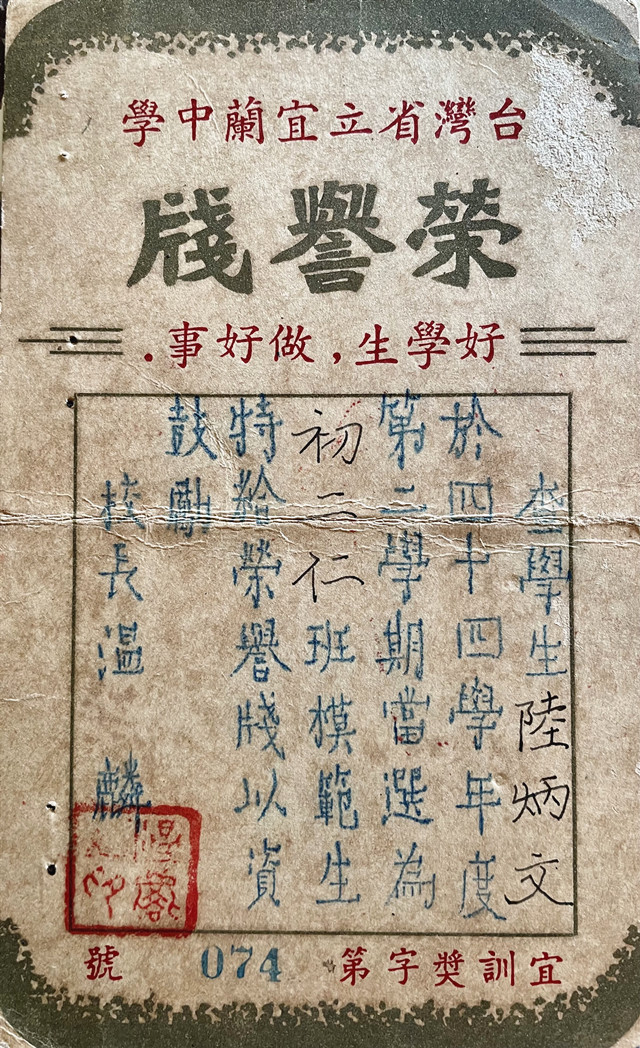 台灣省立宜蘭中學
榮譽牋
好學生，做好事．
查學生陸炳文
於四十四學年度
第二學期當選為
初二仁班模範生
特給榮譽牋以資
鼓勵
校長溫麟
宜訓獎字第074號